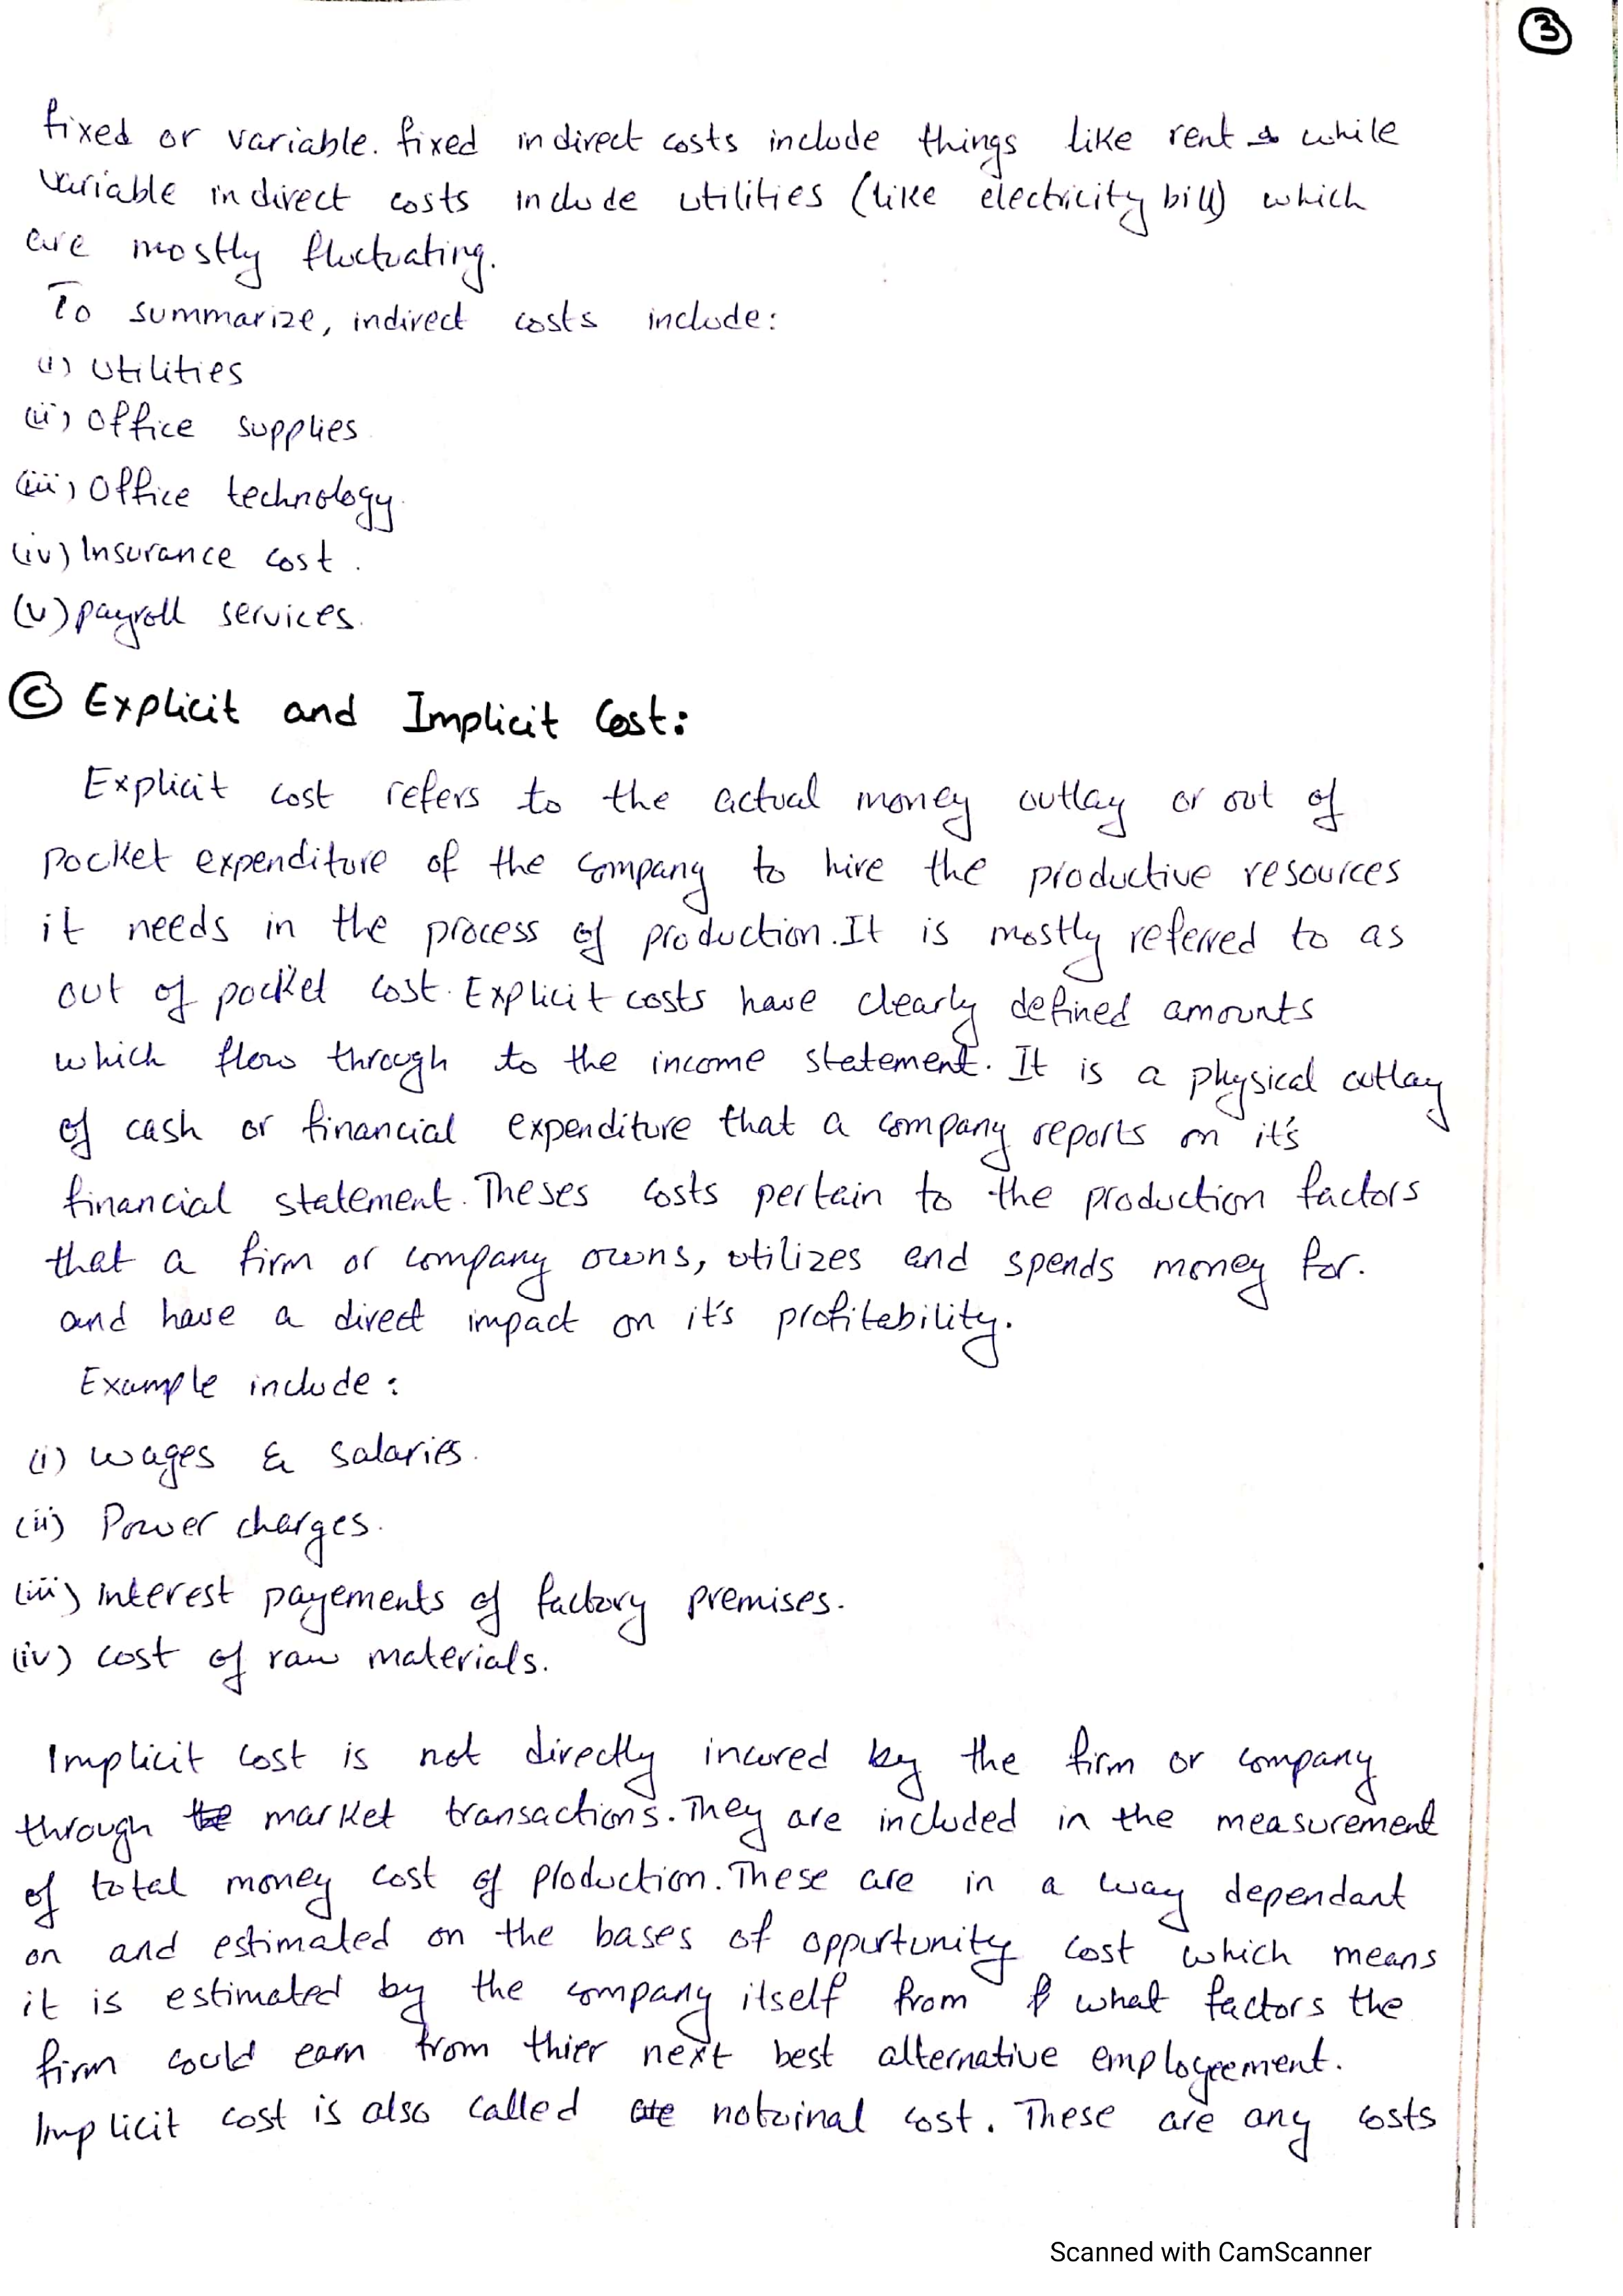 3
fixed or variable. fixed indirect costs include things like rent while
variable indirect costs include utilities (like electricity bill) which
are mostly fluctuating.
To summarize, indirect costs include:
(i) Utilities
(ii) Office supplies
(iii) Office technology.
(iv) Insurance cost.
(v) payroll services.
(C) Explicit and Implicit Cost:
Explicit cost refers to the actual money outlay or out of
pocket expenditure of the company to hire the productive resources
it needs in the process of production. It is mostly referred to as
out of pocket cost. Explicit costs have clearly defined amounts
which flow through to the income statement. It is a physical outlay
of cash or financial expenditure that a company reports on it's
financial statement. Theses costs pertain to the production factors
that a firm or company owns, utilizes and spends money for.
and have a direct impact on it's profitability.
Example include:
(i) wages & salaries.
(ii) Power charges.
(iii) interest payements of factory premises.
(iv) cost of raw materials.
Implicit cost is not directly incured by the firm or company
through the market transactions. They are included in the measurement
of total money cost of production. These are in a way dependant
on and estimated on the bases of oppurtunity cost which means
it is estimated by the company itself from what factors the
firm could earn from thier next best alternative employeement.
Implicit cost is also called notoinal cost. These are any costs
Scanned with CamScanner